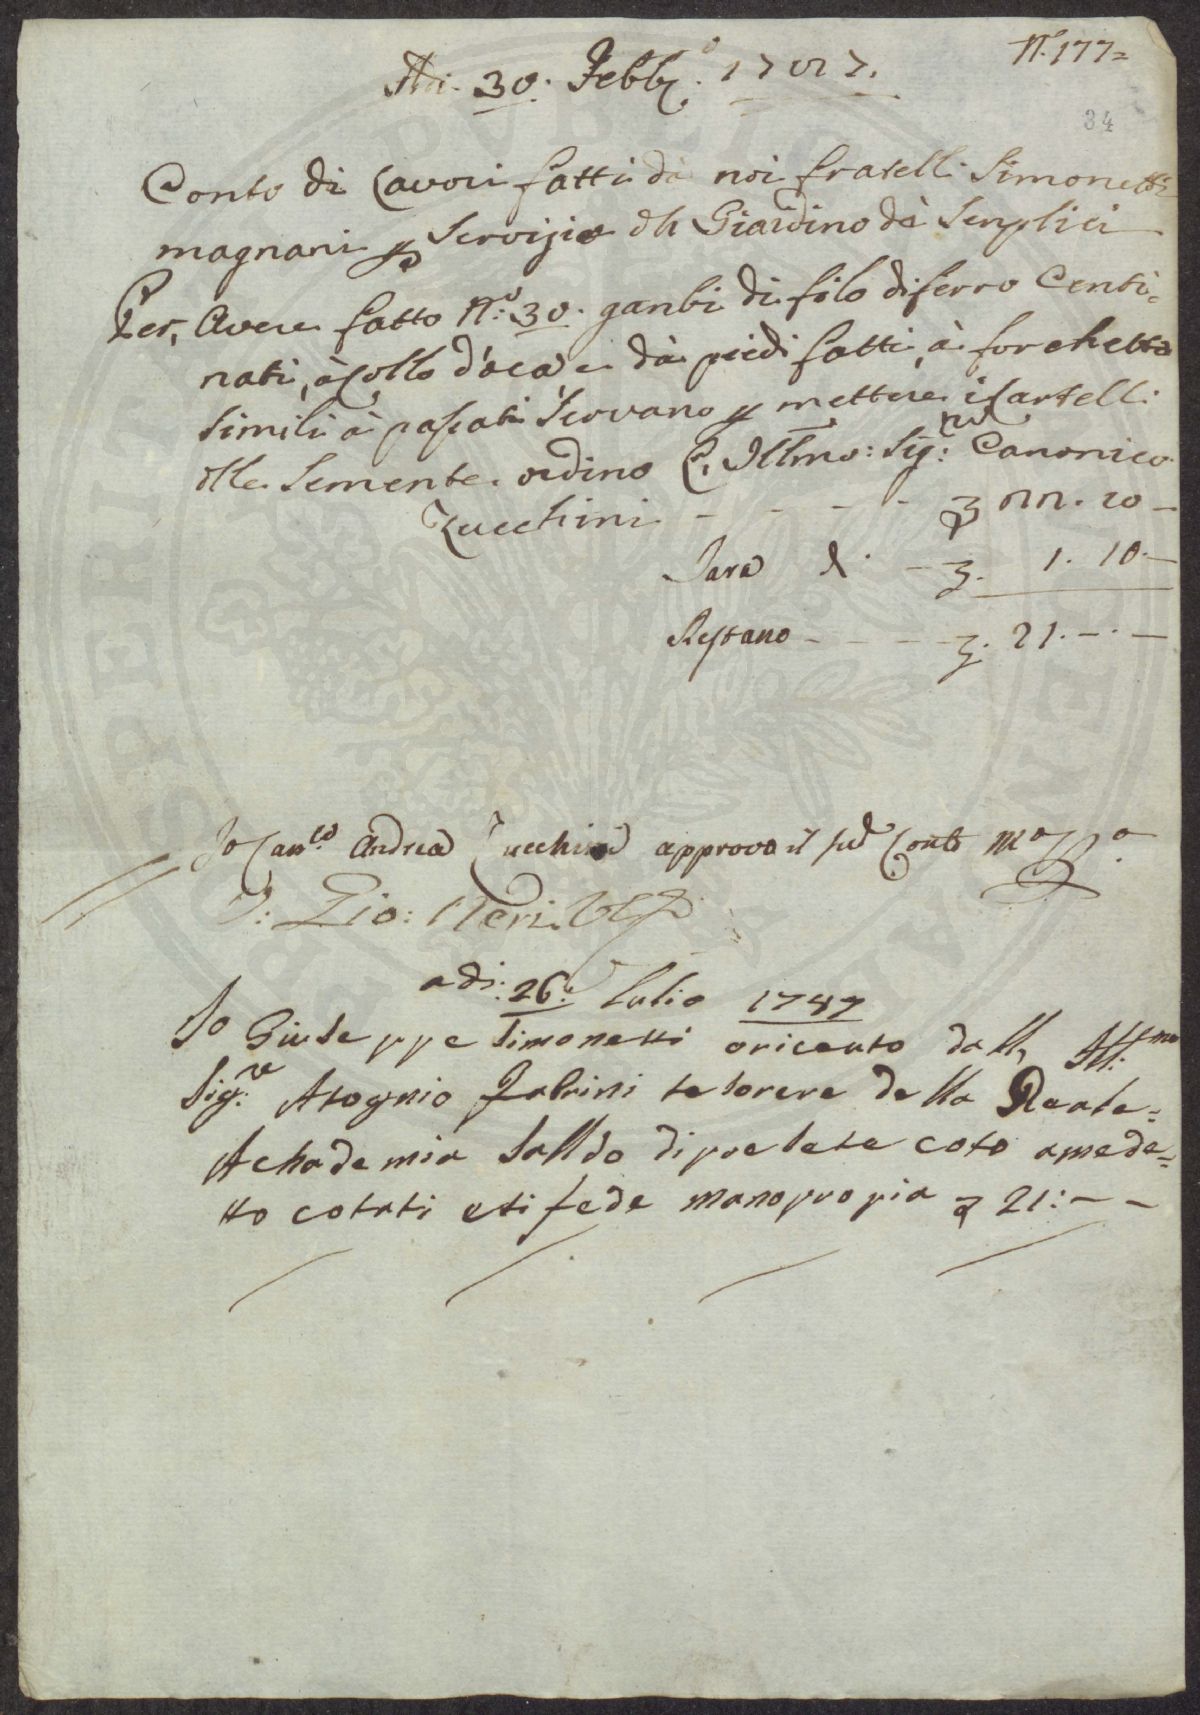 N.º 177=
Adi. 30. Febb.º 1787.
34
Conto di Lavori fatti da noi fratelli Simonetti
magnani p Servizio dl Giardino dè Senplici
Per, Avere fatto N.º 30. ganbi di filo di ferro Centi=
nati, à Collo d'oca e dà piedi fatti, à forchetta
Simili à pasati Servano p mettere i Cartelli
dlle Semente. ordino L, Illmo: Sig:re Canonico
Zucchini - - - - - 22. 10 -
Tara d. - 1. 10. -
Restano - - - - 21. - . -
Io Can.co Andrea Zucchini approvo il sud Conto Mo Ppo
V: Gio: Neri
adi: 26: Lulio 1787
Io Giuseppe Simonetti o riceuto dall, Ill:mo
Sig:re Atognio Fabrini tesorere della Reale=
Achademia Salldo di preseste coto a mede=
tto cotati e ti fede mano propia 21: - -